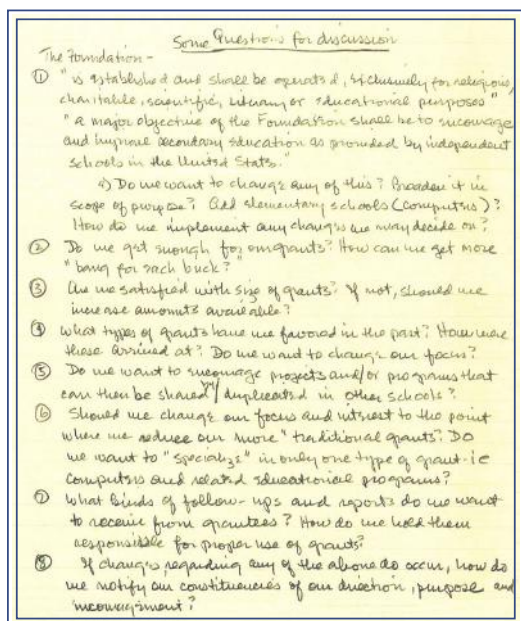 Some Questions for discussion
The Foundation -
① "is established and shall be operated, exclusively for religious,
charitable, scientific, literary or educational purposes"
"a major objective of the Foundation shall be to encourage
and improve secondary education as provided by independent
schools in the United States."
a) Do we want to change any of this? Broaden it in
scope of purpose? Add elementary schools (computers)?
How do we implement any changes we may decide on?
② Do we get enough for our grants? How can we get more
"bang for each buck?"
③ Are we satisfied with size of grants? If not, should we
increase amounts available?
④ What types of grants have we favored in the past? How were
these arrived at? Do we want to change our focus?
⑤ Do we want to encourage projects and/or programs that
can then be shared by/duplicated in other schools?
⑥ Should we change our focus and interest to the point
where we reduce our more "traditional grants? Do
we want to "specialize" in only one type of grant - ie
computers and related educational programs?
⑦ What kinds of follow-ups and reports do we want
to receive from grantees? How do we hold them
responsible for proper use of grants?
⑧ If changes regarding any of the above do occur, how do
we notify our constituencies of our direction, purpose and
encouragement?